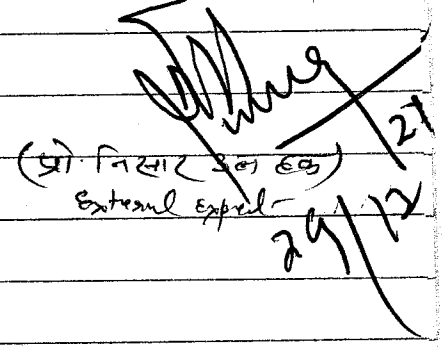 (प्रो. निसार उल हक)
External Expert
29/12